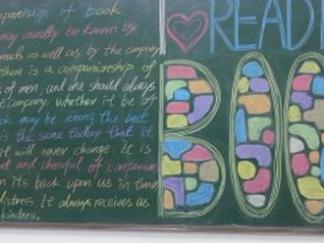 panionship of book
may usually be known by
reads as well as by the company
there is a companionship of
of men, and one should always
t company. whether it be of
ok may be among the best
is the same today that it
t will never change. It is
nt and cheerful of companions
n its book upon us in time
distress. It always receives us
kindness.
READI
BOO